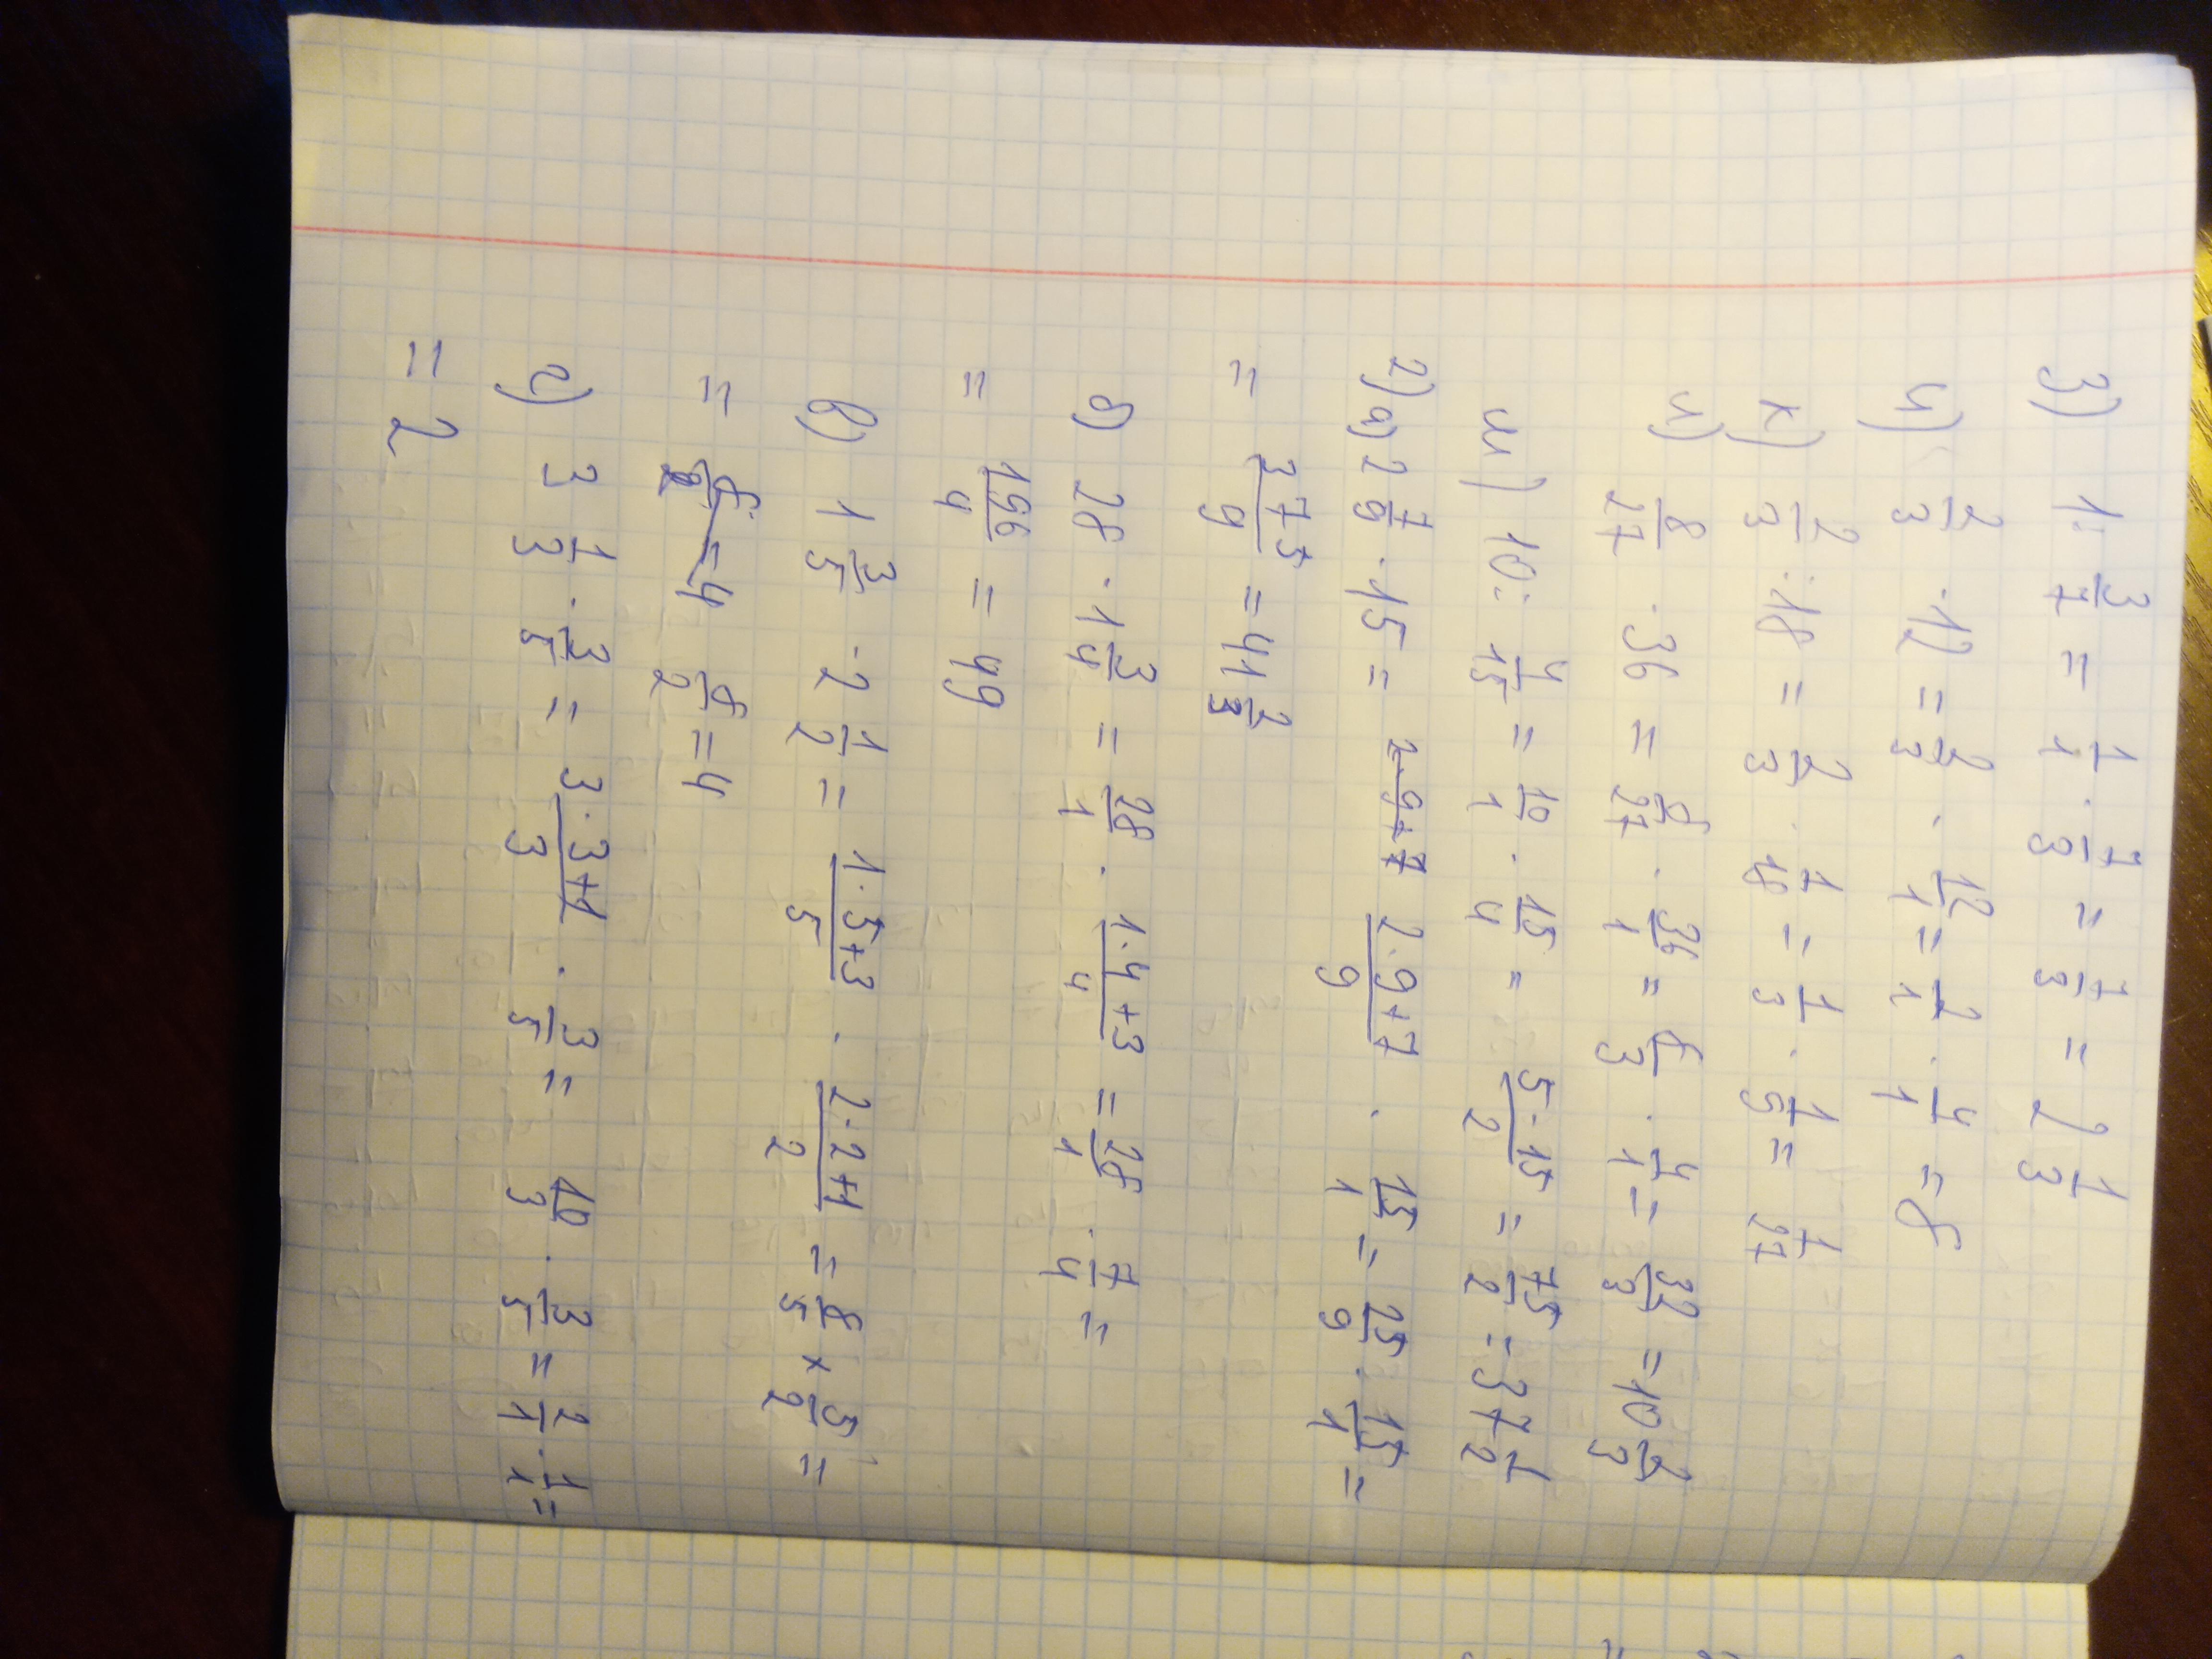 з) 1 : 3/7 = 1/1 · 7/3 = 7/3 = 2 1/3
и) 2/3 · 12 = 2/3 · 12/1 = 2/1 · 4/1 = 8
к) 2/3 : 18 = 2/3 · 1/18 = 1/3 · 1/9 = 1/27
л) 8/27 · 36 = 8/27 · 36/1 = 8/3 · 4/1 = 32/3 = 10 2/3
м) 10 : 4/15 = 10/1 · 15/4 = 5·15/2 = 75/2 = 37 1/2
2) а) 2 7/9 · 15 = 2·9+7 2·9+7/9 · 15/1 = 25/9 · 15/1 =
= 375/9 = 41 2/3
б) 28 · 1 3/4 = 28/1 · 1·4+3/4 = 28/1 · 7/4 =
= 196/4 = 49
в) 1 3/5 · 2 1/2 = 1·5+3/5 · 2·2+1/2 = 8/5 × 5/2 =
= 8/2 = 4 8/2 = 4
г) 3 1/3 · 3/5 = 3·3+1/3 · 3/5 = 10/3 · 3/5 = 2/1 · 1/1 =
= 2